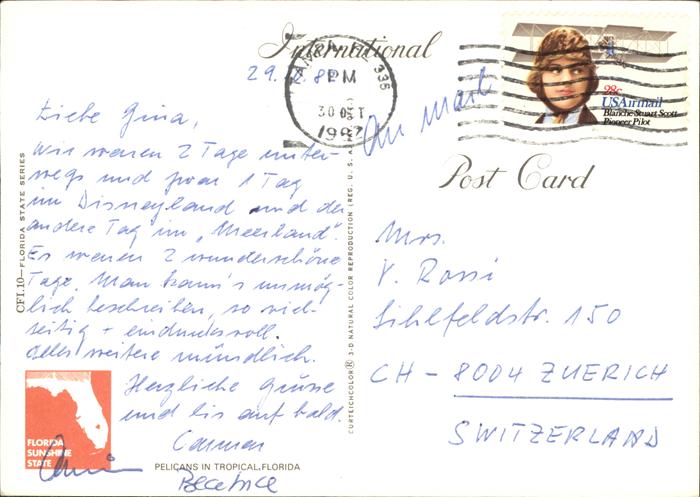 International
Post Card
29.
TAMPA, FL 336
PM
30 OCT
1982
28c
USAirmail
Blanche Stuart Scott
Pioneer Pilot
Air mail
Liebe Gina,
Wir waren 2 Tage unter-
wegs und zwar 1 Tag
im Disneyland und der
andere Tag im „Meerland".
Es waren 2 wunderschöne
Tage. Man kann's unmög-
lich beschreiben, so viel-
seitig + eindrucksvoll.
Alles weitere mündlich.
Herzliche Grüsse
und bis auf bald.
Carmen
Beatrice
Mrs.
V. Rossi
Sihlfeldstr. 150
CH - 8004 ZUERICH
SWITZERLAND
CFI.10—FLORIDA STATE SERIES
CURTEICHCOLOR® 3-D NATURAL COLOR REPRODUCTION (REG. U.S.A.
FLORIDA
SUNSHINE
STATE
PELICANS IN TROPICAL FLORIDA